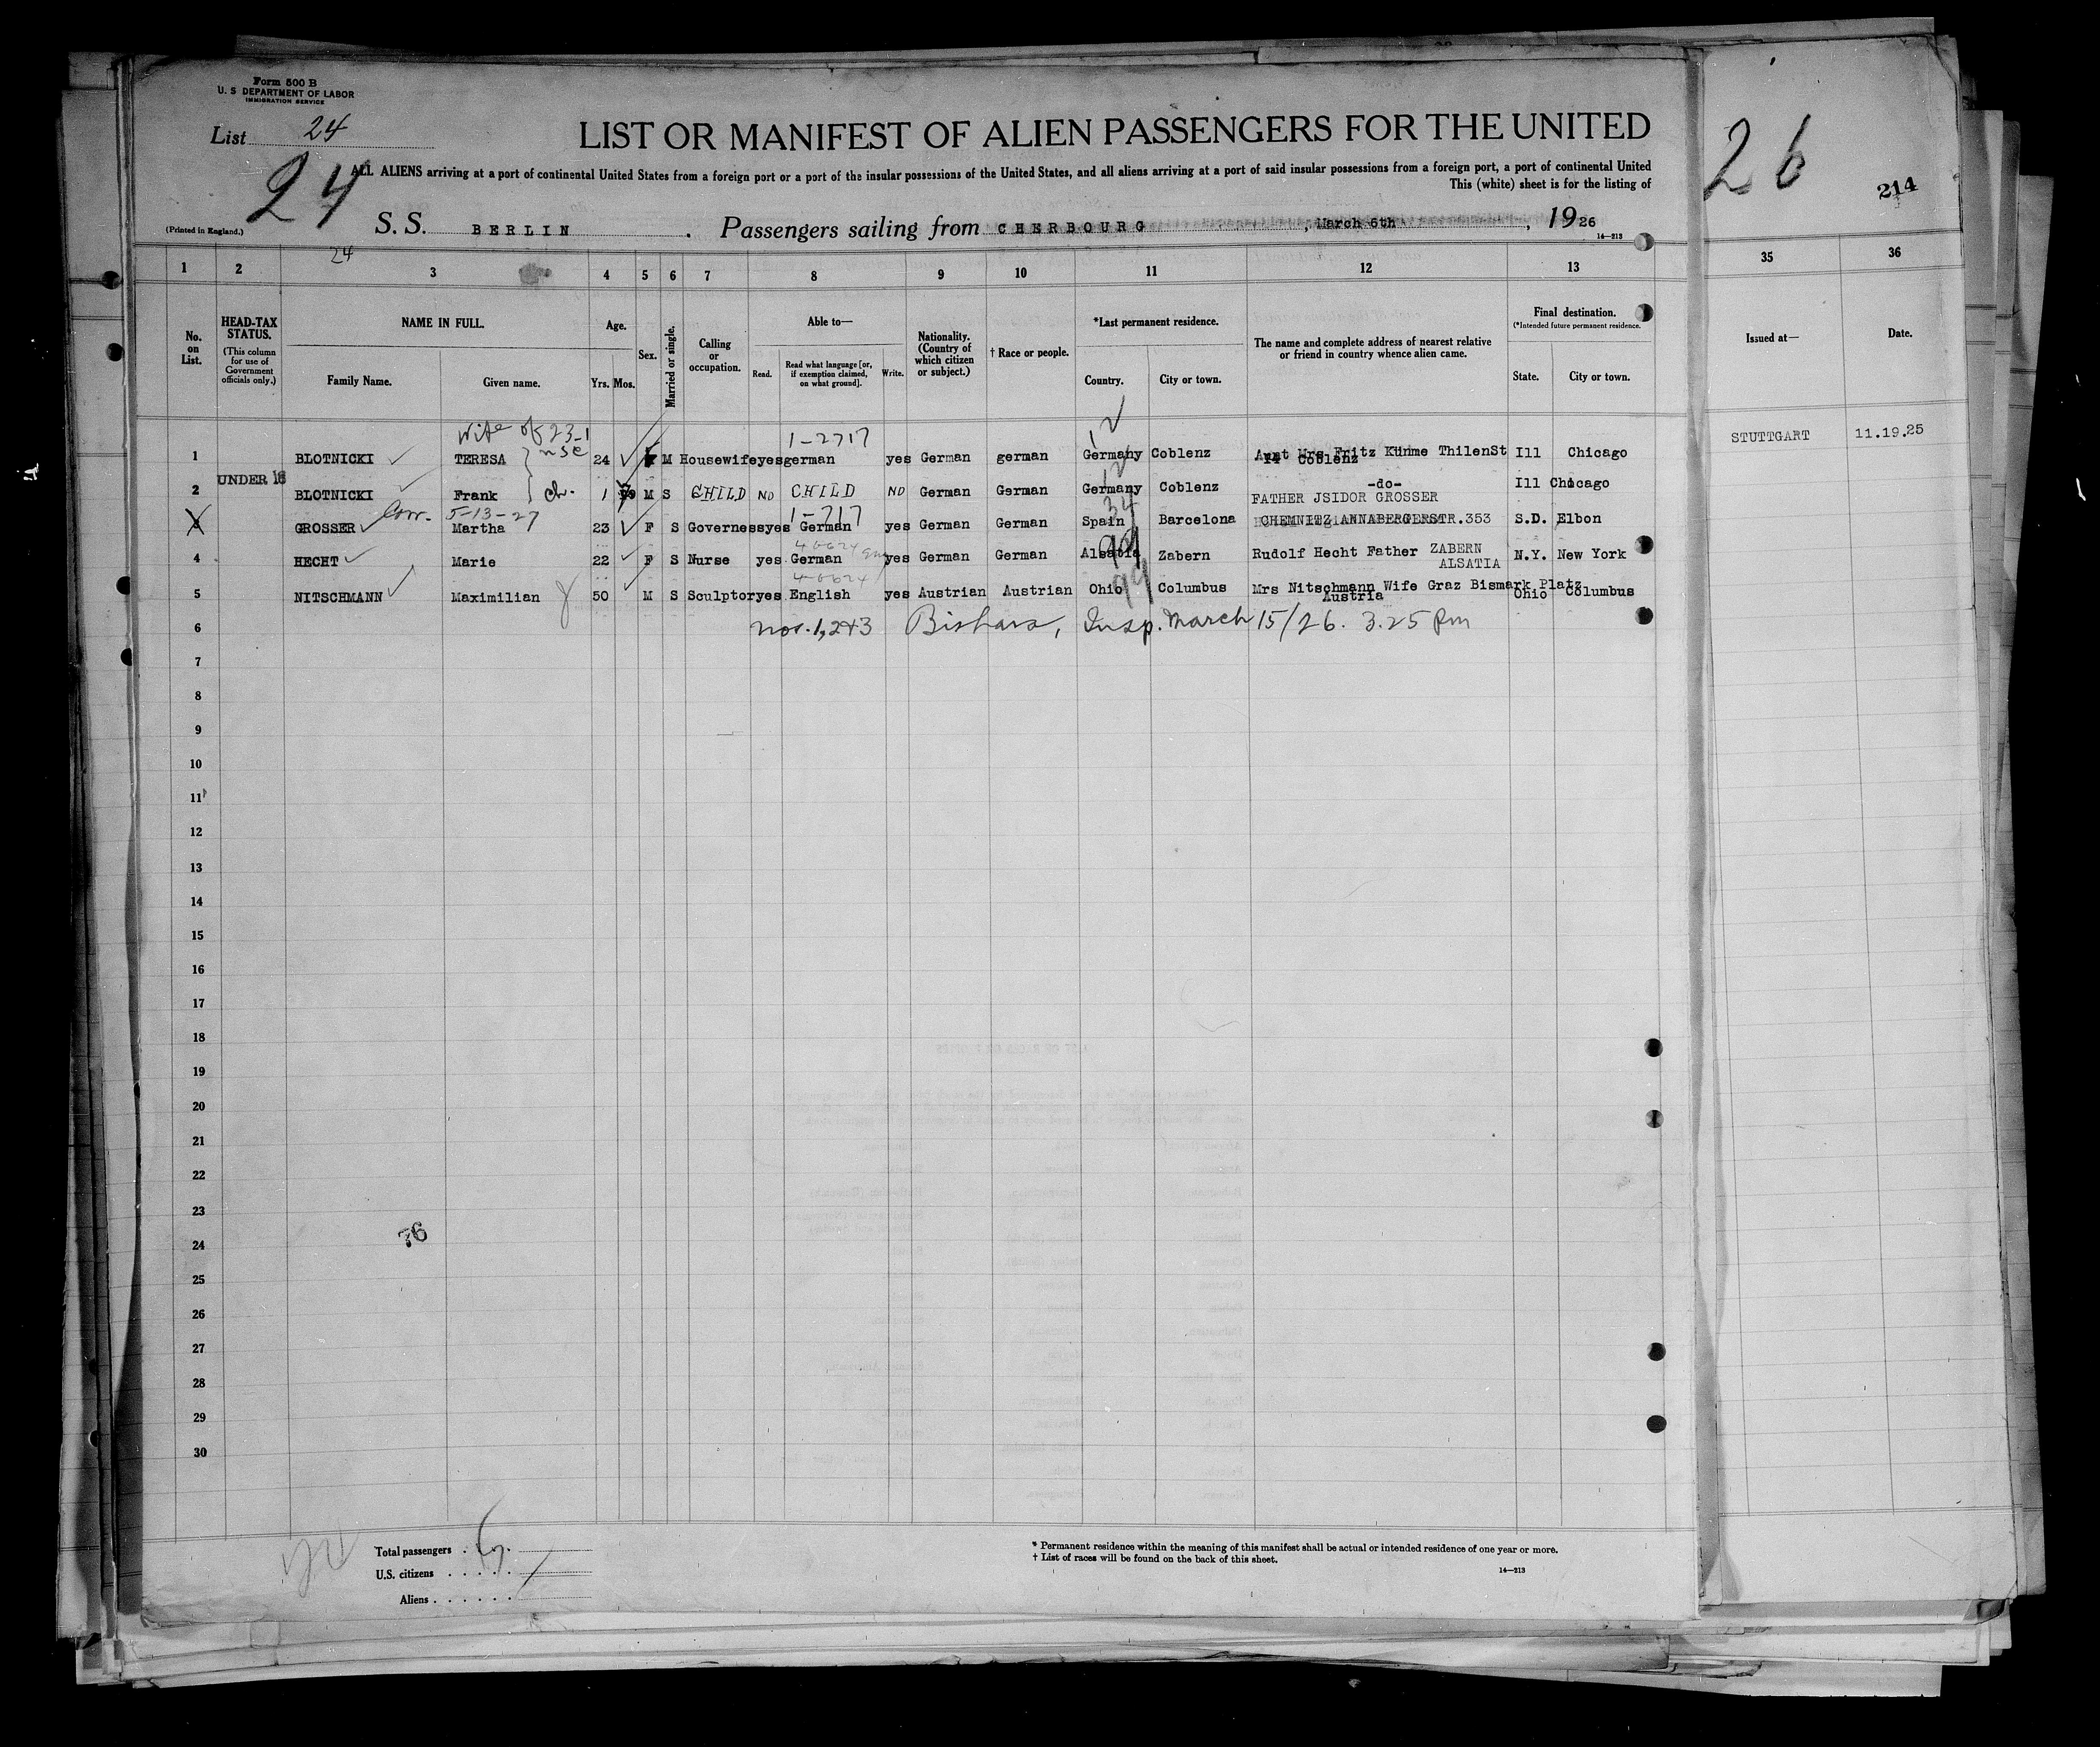 Form 500 B
U. S DEPARTMENT OF LABOR
IMMIGRATION SERVICE
List 24
LIST OR MANIFEST OF ALIEN PASSENGERS FOR THE UNITED
26
214
24
ALL ALIENS arriving at a port of continental United States from a foreign port or a port of the insular possessions of the United States, and all aliens arriving at a port of said insular possessions from a foreign port, a port of continental United
This (white) sheet is for the listing of
(Printed in England.)
S. S. BERLIN . Passengers sailing from CHERBOURG , March 6th , 1926
14—213
24
1 2 3 4 5 6 7 8 9 10 11 12 13 35 36
No. on List.
HEAD-TAX STATUS.
(This column for use of Government officials only.)
NAME IN FULL.
Family Name. Given name.
Age.
Yrs. Mos.
Sex.
Married or single.
Calling or occupation.
Able to—
Read. Read what language [or, if exemption claimed, on what ground]. Write.
Nationality. (Country of which citizen or subject.)
† Race or people.
*Last permanent residence.
Country. City or town.
The name and complete address of nearest relative or friend in country whence alien came.
Final destination.
(*Intended future permanent residence.
State. City or town.
Issued at— Date.
Wife of 23-1 1-2717 12
1 BLOTNICKI TERESA 24 M Housewife yes german yes German german Germany Coblenz Aunt Mrs Fritz Kümme ThilenSt Ill Chicago STUTTGART 11.19.25
14 Coblenz
UNDER 16
2 BLOTNICKI Frank ch. 1 M S CHILD NO CHILD NO German German Germany Coblenz -do- Ill Chicago
FATHER JSIDOR GROSSER
Corr. 5-13-27 1-717 34
3 GROSSER Martha 23 F S Governess yes German yes German German Spain Barcelona CHEMNITZ ANNABERGERSTR.353 S.D. Elbon
4 HECHT Marie 22 F S Nurse yes German yes German German Alsatia Zabern Rudolf Hecht Father ZABERN N.Y. New York
ALSATIA
5 NITSCHMANN Maximilian 50 M S Sculptor yes English yes Austrian Austrian Ohio Columbus Mrs Nitschmann Wife Graz Bismark Platz Ohio Columbus
Austria
6 nos. 1, 2 & 3 Insp. March 15/26. 3.25 Pm
7
8
9
10
11
12
13
14
15
16
17
18
19
20
21
22
23
24
25
26
27
28
29
30
76
Total passengers
U.S. citizens
Aliens
* Permanent residence within the meaning of this manifest shall be actual or intended residence of one year or more.
† List of races will be found on the back of this sheet.
14—213